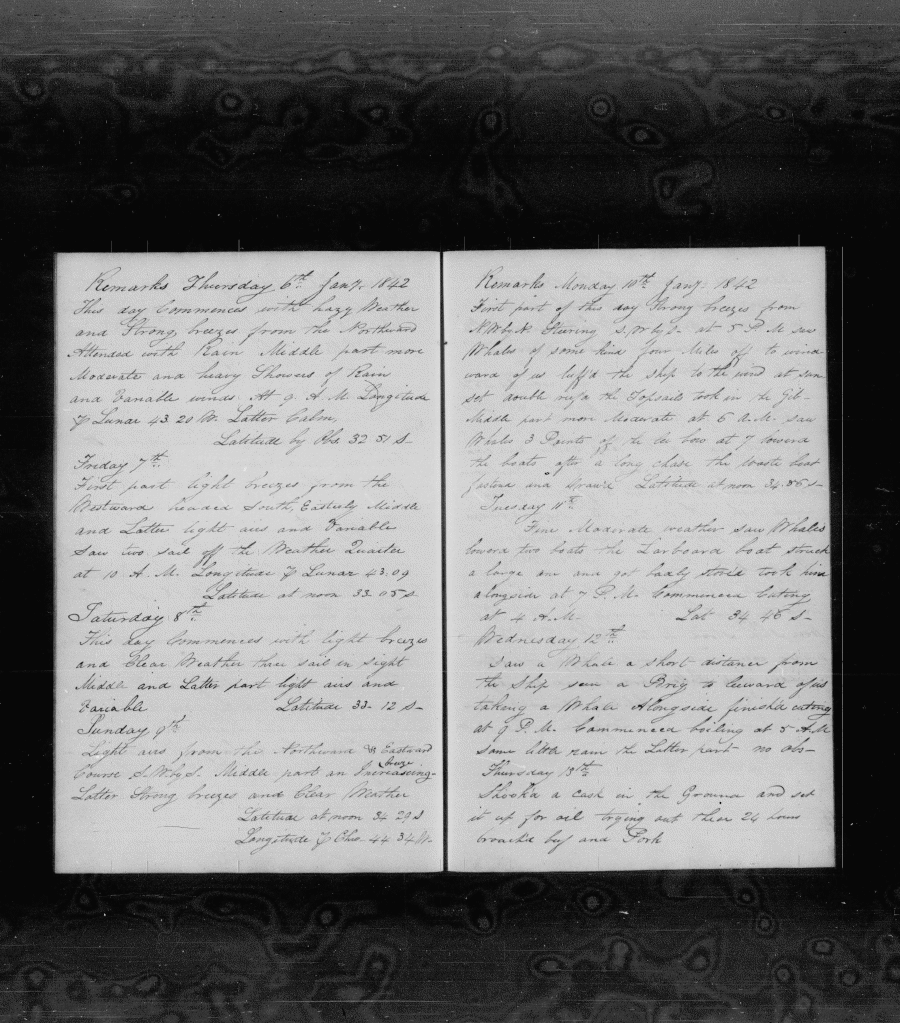 Remarks Thursday 6th Jany. 1842
This day Commences with hazy Weather
and Strong breezes from the Northward
Attended with Rain Middle part more
Moderate and heavy Showers of Rain
and Variable winds At 9 A M Longitude
Lunar 43 20 W. Latter Calm,
Latitude by Obs. 32 51 S-
Friday 7th
First part light breezes from the
Westward headed South Easterly Middle
and Latter light airs and Variable
Saw two sail off the Weather Quarter
at 10 A. M. Longitude Lunar 43.09
Latitude at noon 33 05 S
Saturday 8th
This day Commences with light breezes
and Clear Weather three sail in sight
Middle and Latter part light airs and
Variable Latitude 33-12 S-
Sunday 9th
Light airs from the Northward Eastward
Course S.W.by S. Middle part an Increasing breeze
Latter Strong breezes and Clear Weather
Latitude at noon 34 29 S
Longitude Chro. 44 34 W-
Remarks Monday 10th Jany. 1842
First part of this day Strong breezes from
N.W.b.N. Stearing S.W by S- at 5 P M saw
Whales of some kind four Miles off to wind
ward of us luff'd the ship to the wind at sun
set double reef'd the Topsails took in the Gib-
Middle part more Moderate at 6 A.M. saw
Whales 3 Points off the lee bow at 7 lowerd
the boats after a long chase the waste boat
fastend and drawd Latitude at noon 34.36 S-
Tuesday 11th
Fine Moderate weather saw Whales
lowerd two boats the Larboard boat struck
a large one and got badly stove'd took him
alongside at 7 P. M. Commenced Cutting
at 4 A-M- Lat 34 46 S-
Wednesday 12th
Saw a Whale a short distance from
the Ship seen a Brig to leeward of us
takeing a Whale Alongside finish'd cuting
at 9 P. M. Commenced boiling at 5 A.M
some little rain the Latter part no obs-
Thursday 13th
Shook'd a cask in the Ground and set
it up for oil trying out these 24 hours
broach'd beef and Pork